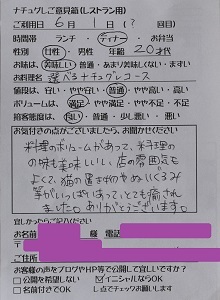 ナチュグレご意見箱(レストラン用)
ご利用日 6月 1日(? 回目)
時間帯 ランチ・ディナー・お弁当
性別 女性・男性 年齢 20才代
お味は、美味しい・普通・あまり美味しくない・まずい
お料理名 選べるナチュグレコース
値段は、安い・やや安い・普通・やや高い・高い
ボリュームは、満足・やや満足・やや不足・不足
店員接客態度は、良い・普通・少し悪い・悪い
お気付きの点がございましたら、お聞かせください
料理のボリュームがあって、お料理
の味も美味しいし、店の雰囲気も
よくて、猫の置き物やぬいぐるみ
等がいっぱいあって、とても癒され
ました。ありがとうございます。
宜しかったらご記入ください
お名前 様 電話
〒
ご住所
お客様の声をブログやHP等で公開して宜しいですか?
公開を希望しない イニシャルならOK
名前付きでOK し点でチェックお願いします